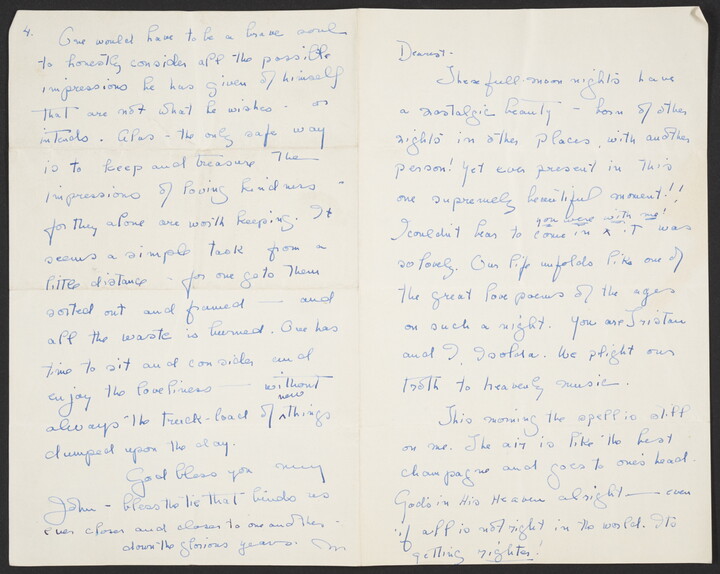 Dearest -
These full-moon nights have
a nostalgic beauty - born of other
nights in other places, with another
person! Yet ever present in this
one supremely beautiful moment!!
you were with me!
I couldn't bear to come in x it was
so lovely. Our life unfolds like one of
the great love poems of the ages
on such a night. You are Tristan
and I, Isolda. We plight our
troth to heavenly music.
This morning the spell is still
on me. The air is like the best
champagne and goes to one's head.
God's in His Heaven alright — even
if all is not right in the world. Its
getting righter!
4.
One would have to be a brave soul
to honestly consider all the possible
impressions he has given of himself
that are not what he wishes - or
intends. Alas - the only safe way
is to keep and treasure the
impressions of loving kindness -
for they alone are worth keeping. It
seems a simple task from a
little distance - for one gets them
sorted out and framed — and
all the waste is burned. One has
time to sit and consider and
enjoy the loveliness — without
new
always the truck-load of ^ things
dumped upon the day.
God bless you my
John - bless the tie that binds us
ever closer and closer to one another -
down the glorious years. M